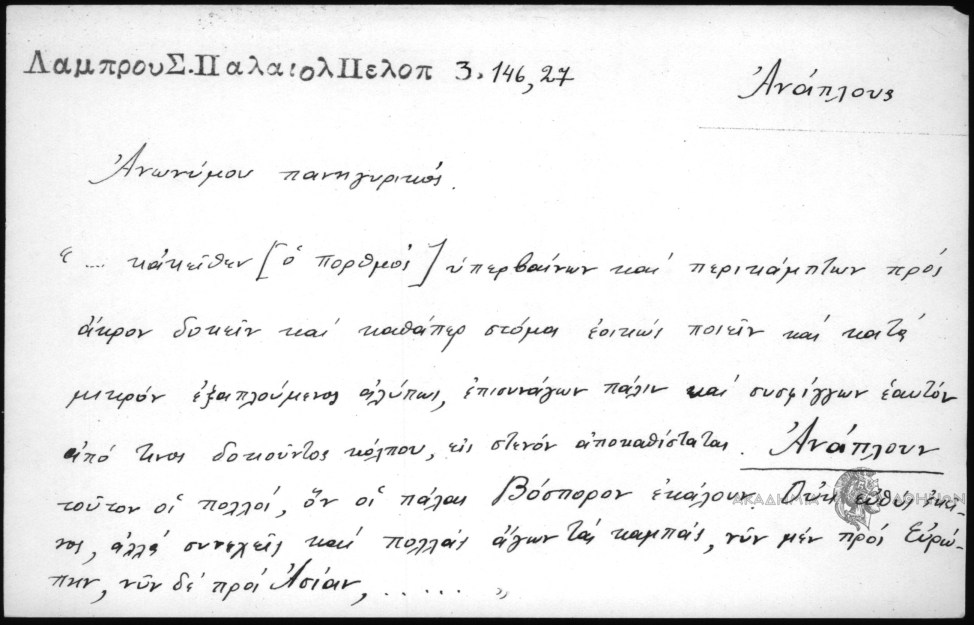 Λαμπρου Σ. Παλαιολ Πελοπ 3. 146, 27
Ἀνάπλους
Ἀνωνύμου πανηγυρικός.
« .... κἀκεῖθεν [ὁ πορθμός] ὑπερβαίνων καί περικάμπτων πρός
ἄκρον δοκεῖν καί καθάπερ στόμα ἐοικώς ποιεῖν καί κατά
μικρόν ἐξαπλούμενος ἀλύπως, ἐπισυνάγων πάλιν καί συσφίγγων ἑαυτόν
ἀπό τινος δοκοῦντος κόλπου, εἰς στενόν ἀποκαθίσταται. Ἀνάπλουν
τοῦτον οἱ πολλοί, ὅν οἱ πάλαι Βόσπορον ἐκάλουν. Οὐκ εὐθύς ἐκεῖ-
νος, ἀλλά συνεχεῖς καί πολλάς ἄγων τάς καμπάς, νῦν μέν πρός Εὐρώ-
πην, νῦν δέ πρός Ἀσίαν, ...... »
ΑΚΑΔΗΜΙΑ ΑΘΗΝΩΝ